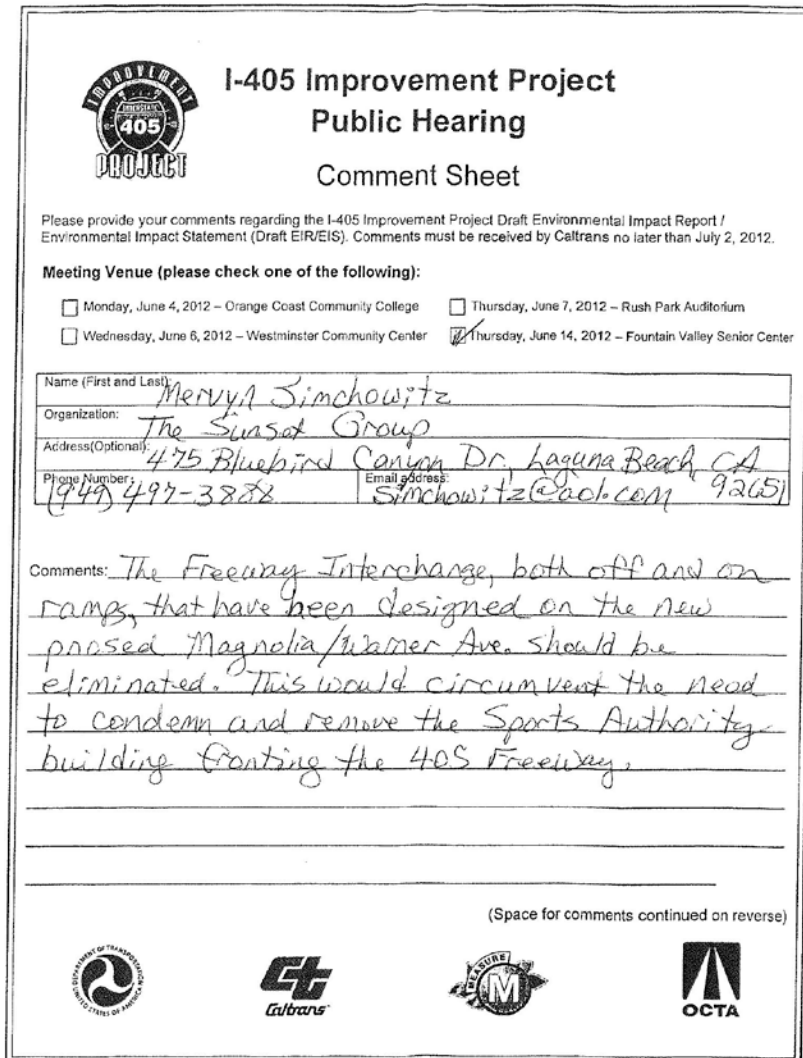 IMPROVEMENT
INTERSTATE
405
PROJECT
I-405 Improvement Project
Public Hearing
Comment Sheet
Please provide your comments regarding the I-405 Improvement Project Draft Environmental Impact Report /
Environmental Impact Statement (Draft EIR/EIS). Comments must be received by Caltrans no later than July 2, 2012.
Meeting Venue (please check one of the following):
Monday, June 4, 2012 – Orange Coast Community College
Thursday, June 7, 2012 – Rush Park Auditorium
Wednesday, June 6, 2012 – Westminster Community Center
Thursday, June 14, 2012 – Fountain Valley Senior Center
Name (First and Last): Mervyn Simchowitz
Organization: The Sunset Group
Address(Optional): 475 Bluebird Canyon Dr, Laguna Beach, CA
Phone Number: (949) 497-3888 Email address: Simchowitz@aol.com 92651
Comments: The Freeway Interchange, both off and on
ramps, that have been designed on the new
prosed Magnolia/Warner Ave. should be
eliminated. This would circumvent the need
to condemn and remove the Sports Authority
building fronting the 405 Freeway.
(Space for comments continued on reverse)
DEPARTMENT OF TRANSPORTATION
UNITED STATES OF AMERICA
Caltrans
MEASURE
M
OCTA